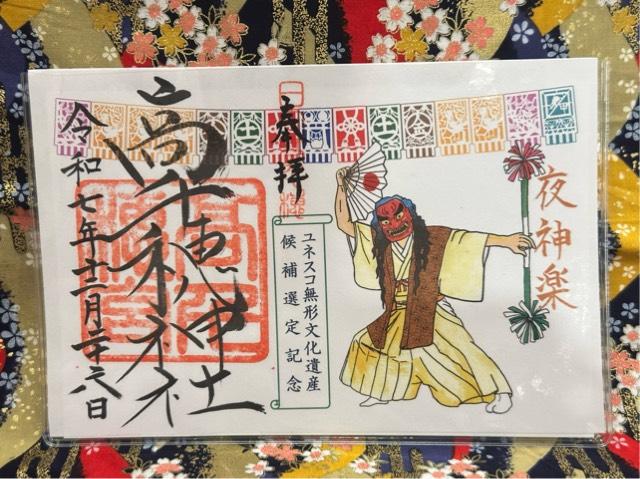 夜神楽
ユネスコ無形文化遺産
候補選定記念
奉拝
高千穂神社
令和七年十二月二十八日